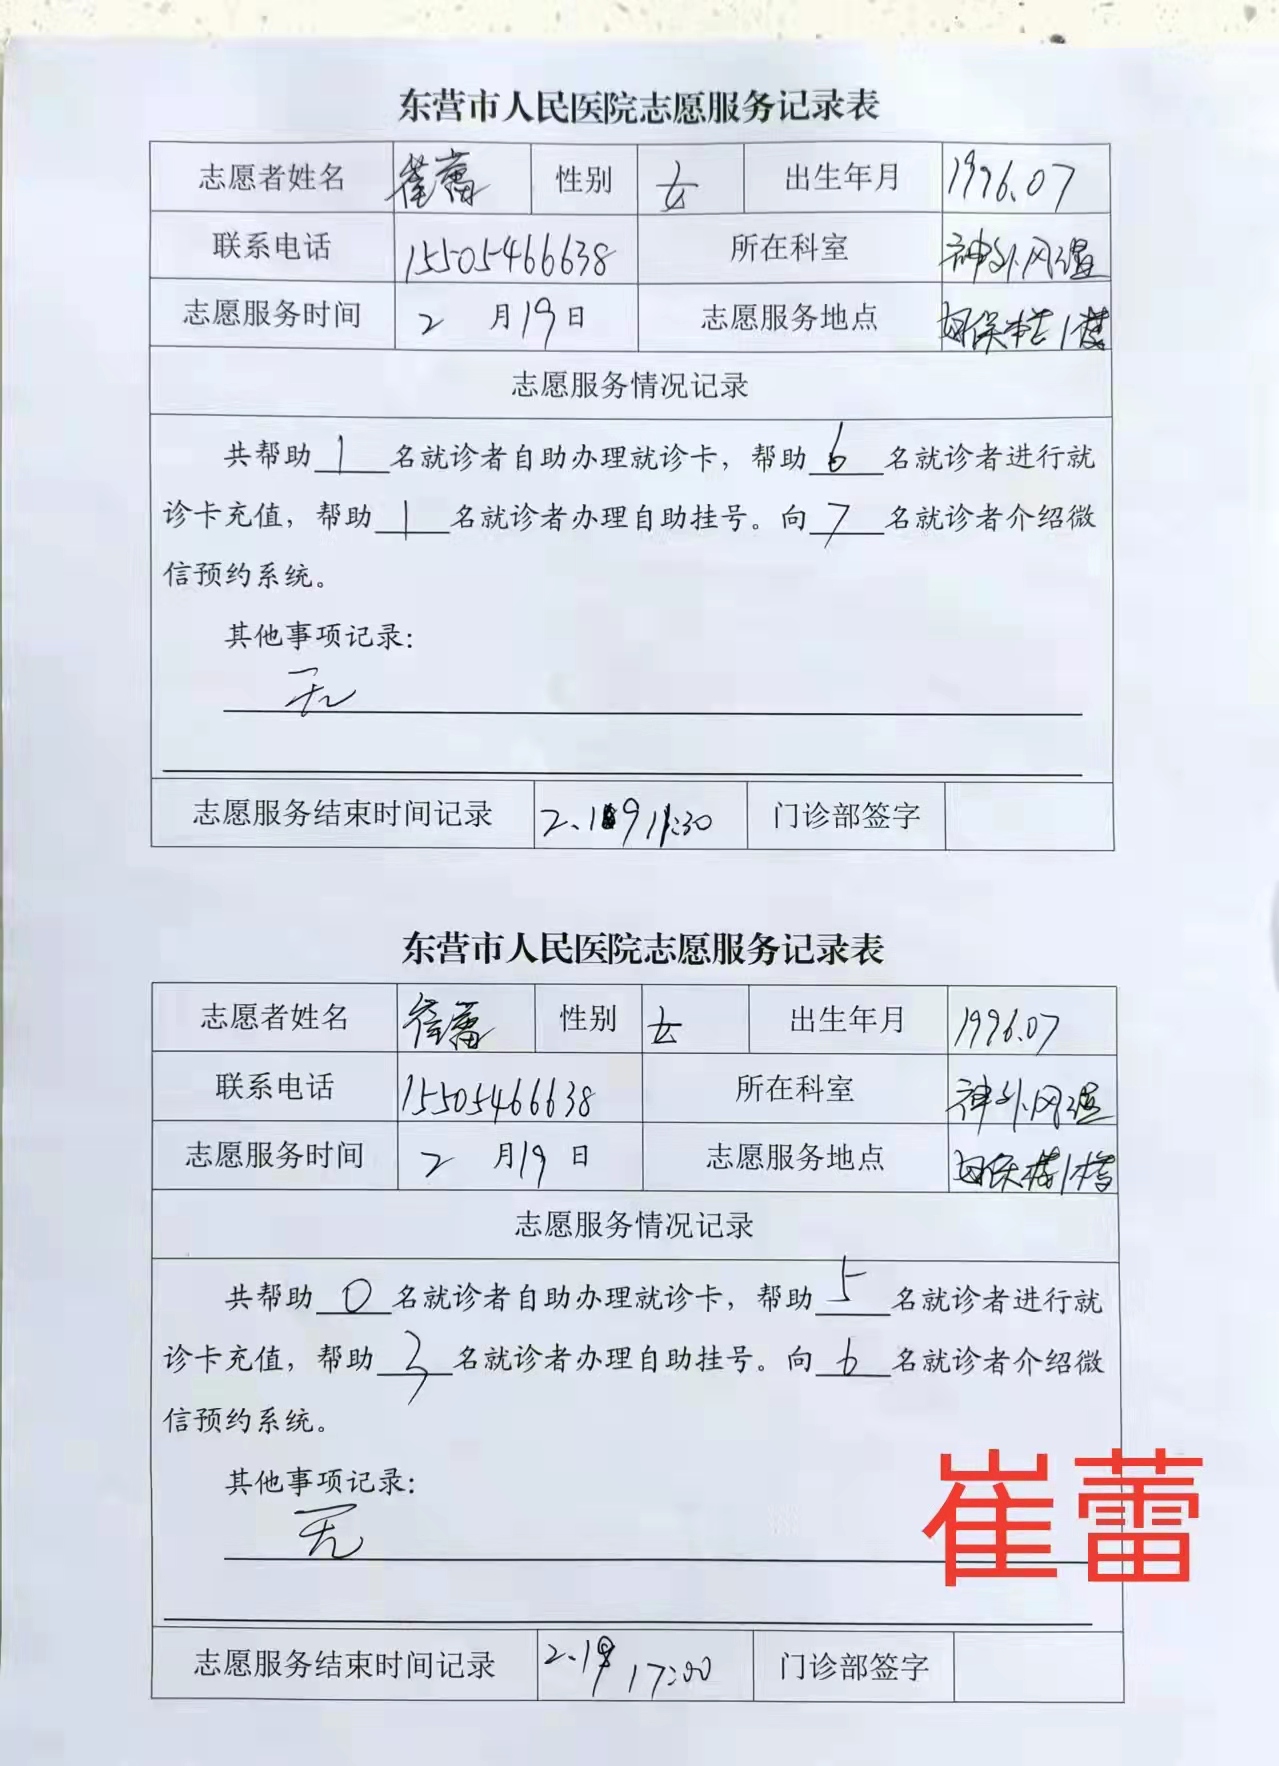 东营市人民医院志愿服务记录表
志愿者姓名 崔蕾 性别 女 出生年月 1996.07
联系电话 15505466638 所在科室 神外
志愿服务时间 2 月19日 志愿服务地点 妇保楼1楼
志愿服务情况记录
共帮助 1 名就诊者自助办理就诊卡，帮助 6 名就诊者进行就
诊卡充值，帮助 1 名就诊者办理自助挂号。向 7 名就诊者介绍微
信预约系统。
其他事项记录：
无
志愿服务结束时间记录 2.19 11:30 门诊部签字
东营市人民医院志愿服务记录表
志愿者姓名 崔蕾 性别 女 出生年月 1996.07
联系电话 15505466638 所在科室 神外
志愿服务时间 2 月19日 志愿服务地点 妇保楼1楼
志愿服务情况记录
共帮助 0 名就诊者自助办理就诊卡，帮助 5 名就诊者进行就
诊卡充值，帮助 3 名就诊者办理自助挂号。向 6 名就诊者介绍微
信预约系统。
其他事项记录：
无
崔蕾
志愿服务结束时间记录 2.19 17:00 门诊部签字